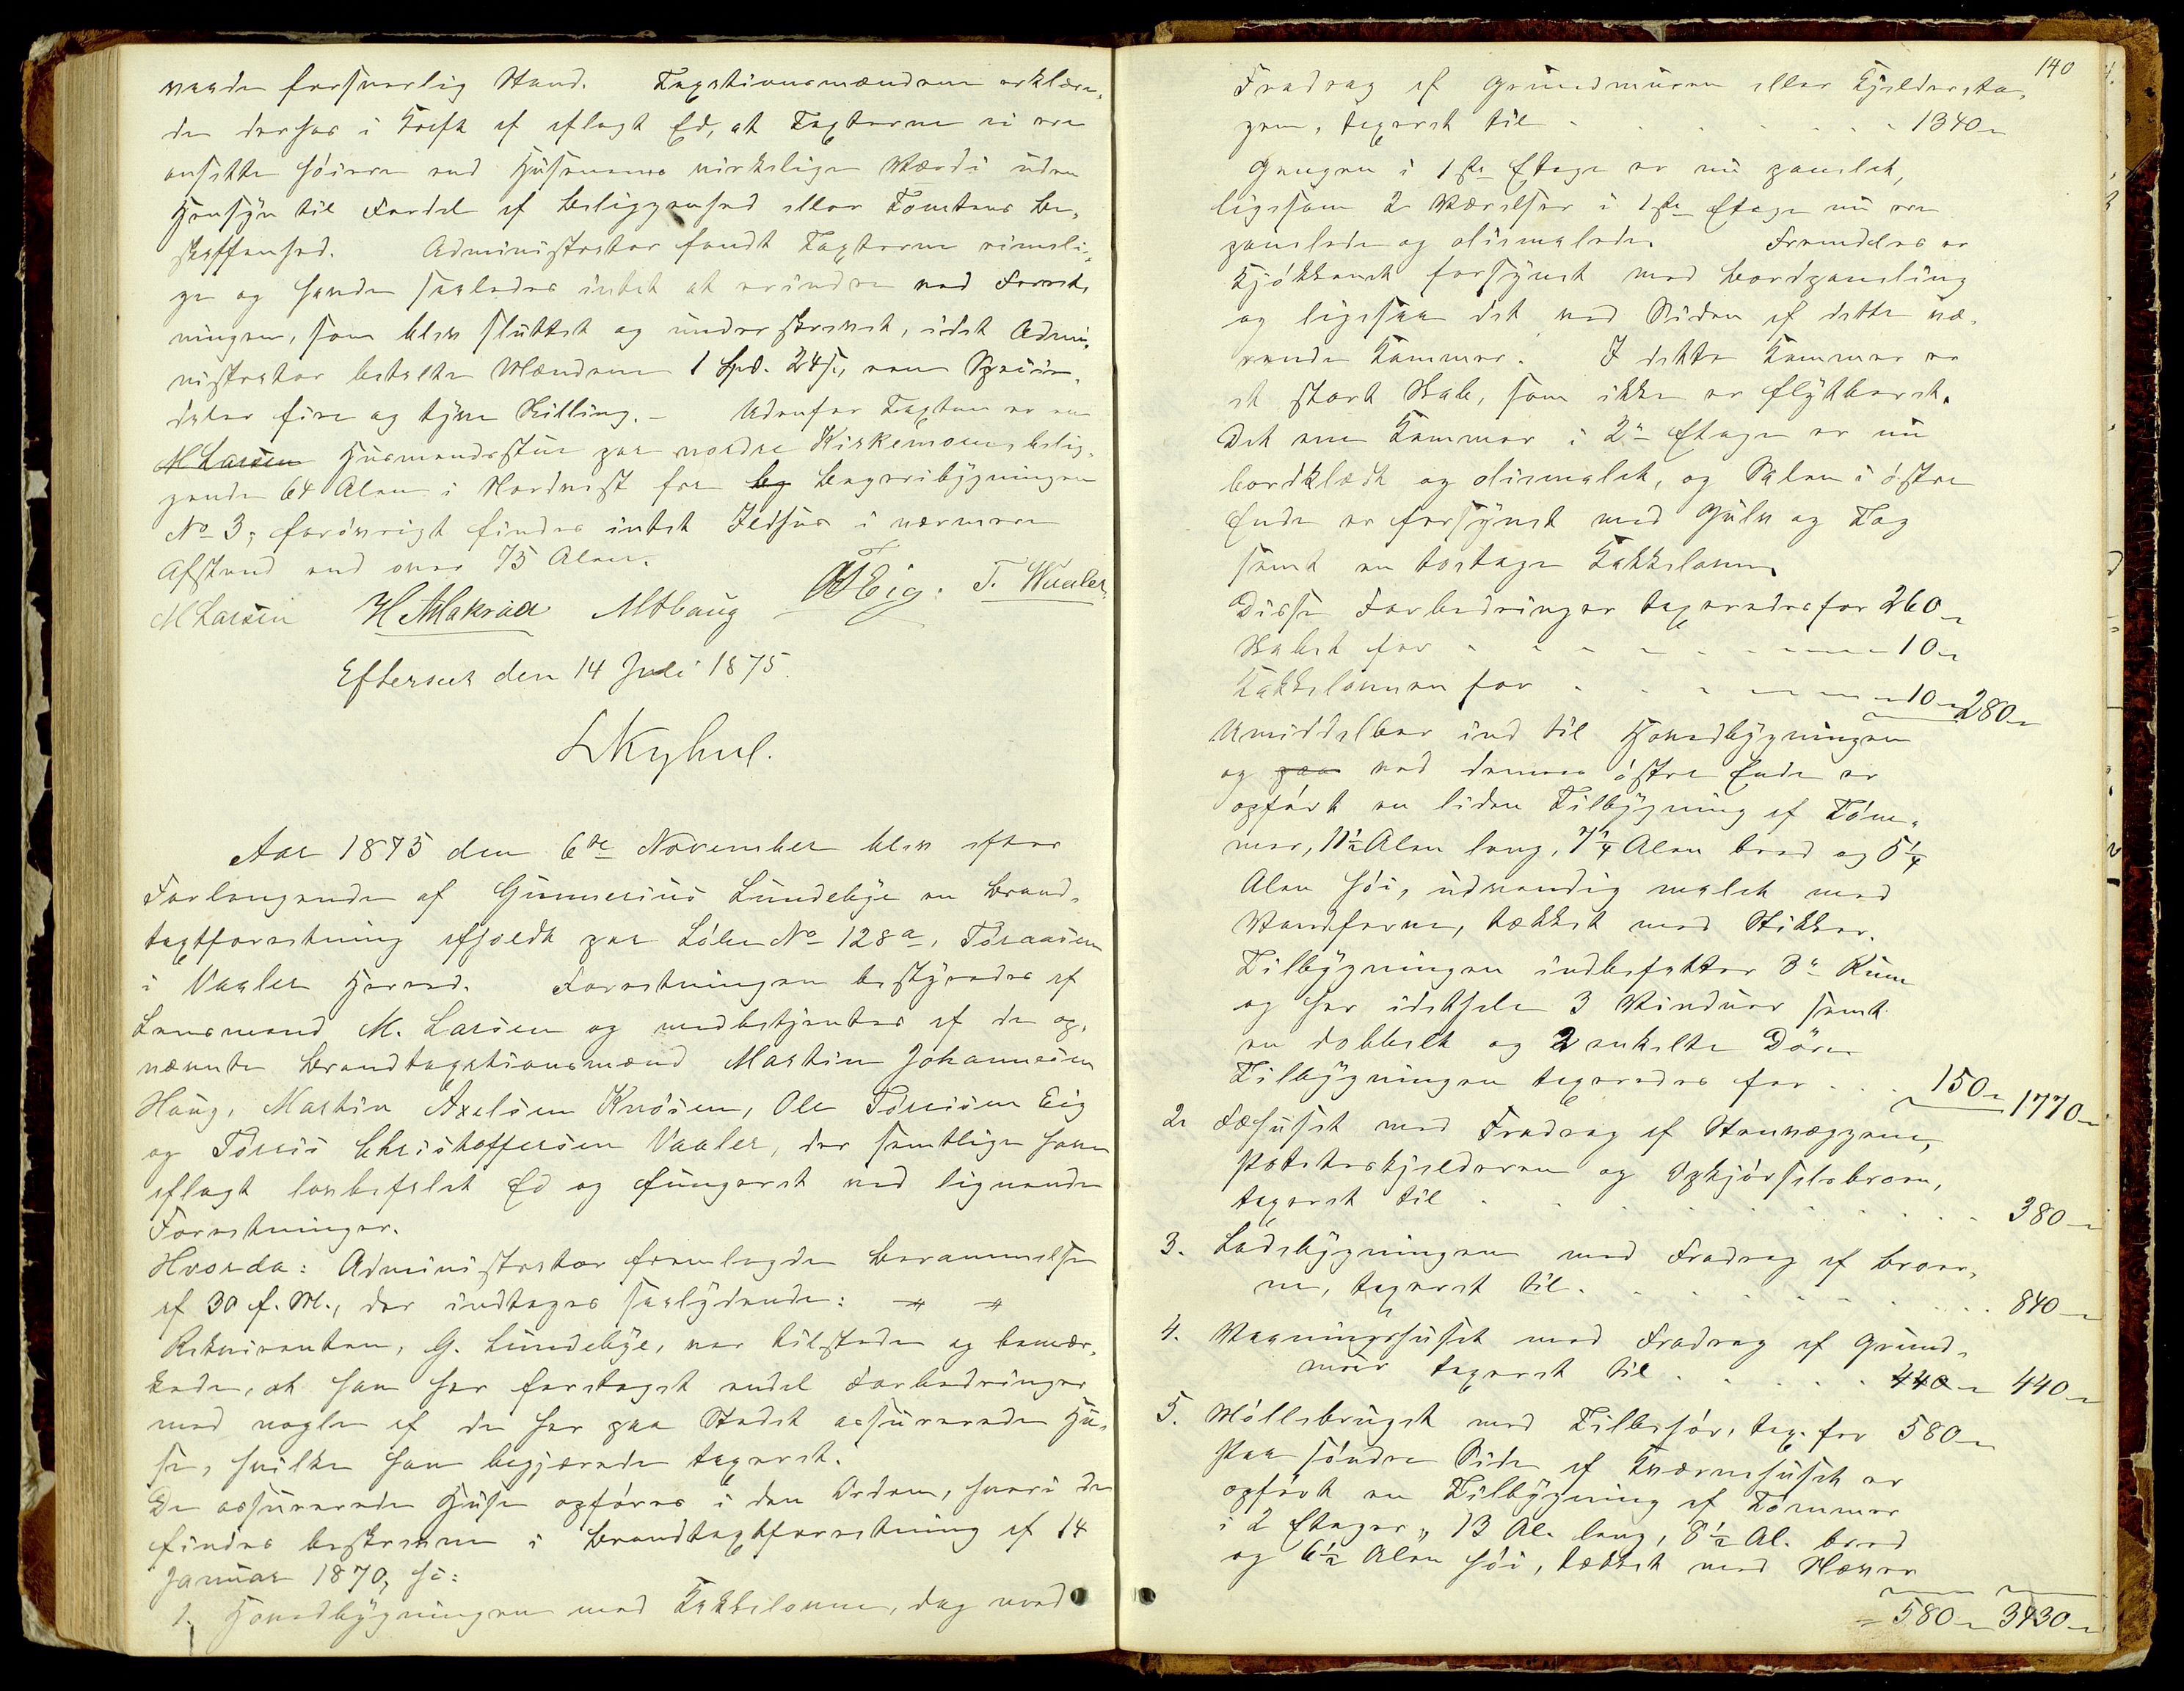 vaade forsvarlig Stand. Taxtionsmændene erklære,
de derhos i Kraft af aflagt Ed, at Taxterne ei ere
ansatte høiere end Husenes virkelige Værdi uden
Hensyn til Fordel af Beliggenhed eller Tomtens Be-
skaffenhed. Administrator fandt Taxterne rimeli-
ge og havde saaledes intet at erindre ved Forret-
ningen, som blev sluttet og underskrevet, idet Admi-
nistrator betalte Mændene 1 Spd. 24 s, een Specie-
daler fire og tyve Skilling. – Udenfor Taxten er en
M Larsen Husmandsstue paa nordre Kirkemoen belig-
gende 64 Alen i Nordvest fra by Bageribygningen
No 3; forøvrigt findes intet Ildhus i nærmere
Afstand end over 75 Alen.
M Larsen H. A. Makrud M Haug O T Eig. T. Waaler,
Efterseet den 14 Juli 1875.
L Kyhul.
Aar 1875 den 6te November blev efter
Forlangende af Gunnerius Lundebye en Brand-
taxtforretning afholdt paa Løbe No 128a, Toraasen
i Vaaler Herred. Forretningen bestyredes af
Lensmand M. Larsen og medbetjentes af de op-
nævnte Brandtaxationsmænd Martin Johannesen
Haug, Martin Axelsen Knosen, Ole Torsisen Eig
og Torsis Christoffersen Vaaler, der samtlige have
aflagt lovbefalet Ed og fungeret ved lignende
Forretninger.
Hvorda: Administrator fremlagde Berammelse
af 30 f. M., der indtages saalydende: # #
Rekvirenten, G. Lundebye, var tilstede og bemær-
kede, at han har foretaget endel Forbedringer
med nogle af de her paa Stedet assurerede Hu-
se, hvilke han begjærede taxeret.
De assurerede Huse opføres i den Orden, hvori de
findes beskrevne i Brandtaxtforretning af 14
Januar 1870, so:
1. Hovedbygningen med Kakkelovne, dog med
140
Fradrag af Grundmuren eller Kjeldereta-
gen, taxeret til . . . . . . . . 1340 "
Gangen i 1ste Etage er nu panelet,
ligesom 2 Værelser i 1ste Etage nu ere
panelede og oliemalede. Fremdeles er
Kjøkkenet forsynet med Bordpaneling
og ligesaa det ved Siden af dette væ-
rende Kammer. I dette Kammer er
et stort Skab, som ikke er flytbart.
Det ene Kammer i 2den Etage er nu
bordklædt og oliemalet, og Salen i østre
Ende er forsynet med Gulv og Tag
samt en toetages Kakkelovn.
Disse Forbedringer taxeredes for 260 "
Skabet for . . . . . . . . 10 "
Kakkelovnen for . . . . . . . 10 " 280 "
Umiddelbar ind til Hovedbygningen
og paa ved dennes østre Ende er
opført en liden Tilbygning af Tøm-
mer, 11½ Alen lang, 7¼ Alen bred og 5¼
Alen høi, udvendig malet med
Vandfarve, tækket med Stikker.
Tilbygningen indbefatter 3de Rum
og har idethele 3 Vinduer samt
en dobbelt og 2 enkelte Døre
Tilbygningen taxeredes for . . . 150 " 1770 "
2. Fæhuset med Fradrag af Stenvæggene,
Potetoskjelderen og Opkjørselsbroen,
taxeret til . . . . . . . . 380 "
3. Ladebygningen med Fradrag af Broer-
ne, taxeret til . . . . . . . . 840 "
4. Vaaningshuset med Fradrag af Grund-
muur taxeret til . . . . . 440 " 440 "
5. Møllebruget med Tilbehør, tax. for 580 "
Paa søndre Side af Kværnehuset er
opført en Tilbygning af Tømmer
i 2 Etager, 13 Al. lang, 8½ Al. bred
og 6½ Alen høi, tækket med Næver
= 580 " 3430 "